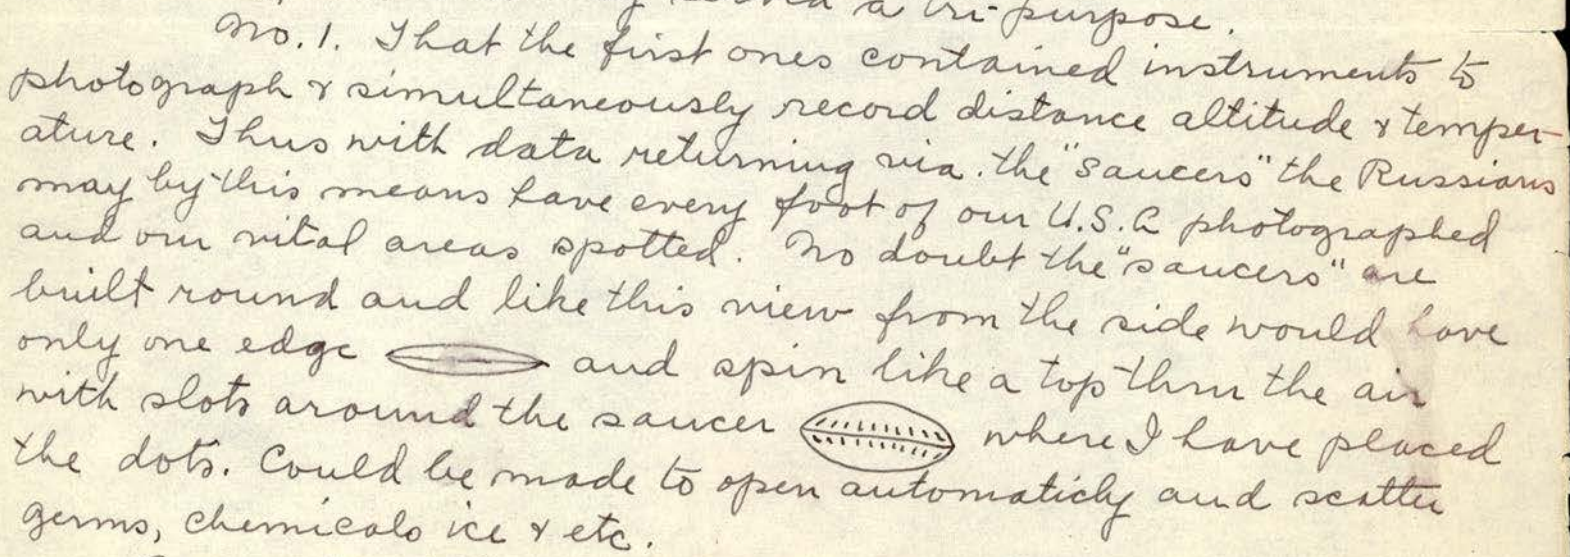 a tri-purpose.
No. 1. That the first ones contained instruments to
photograph & simultaneously record distance altitude & temper-
ature. Thus with data returning via. the "saucers" the Russians
may by this means have every foot of our U.S.A photographed
and our vital areas spotted. No doubt the "saucers" are
built round and like this view from the side would have
only one edge and spin like a top thru the air
with slots around the saucer where I have placed
the dots. Could be made to open automaticly and scatter
germs, chemicals ice & etc.